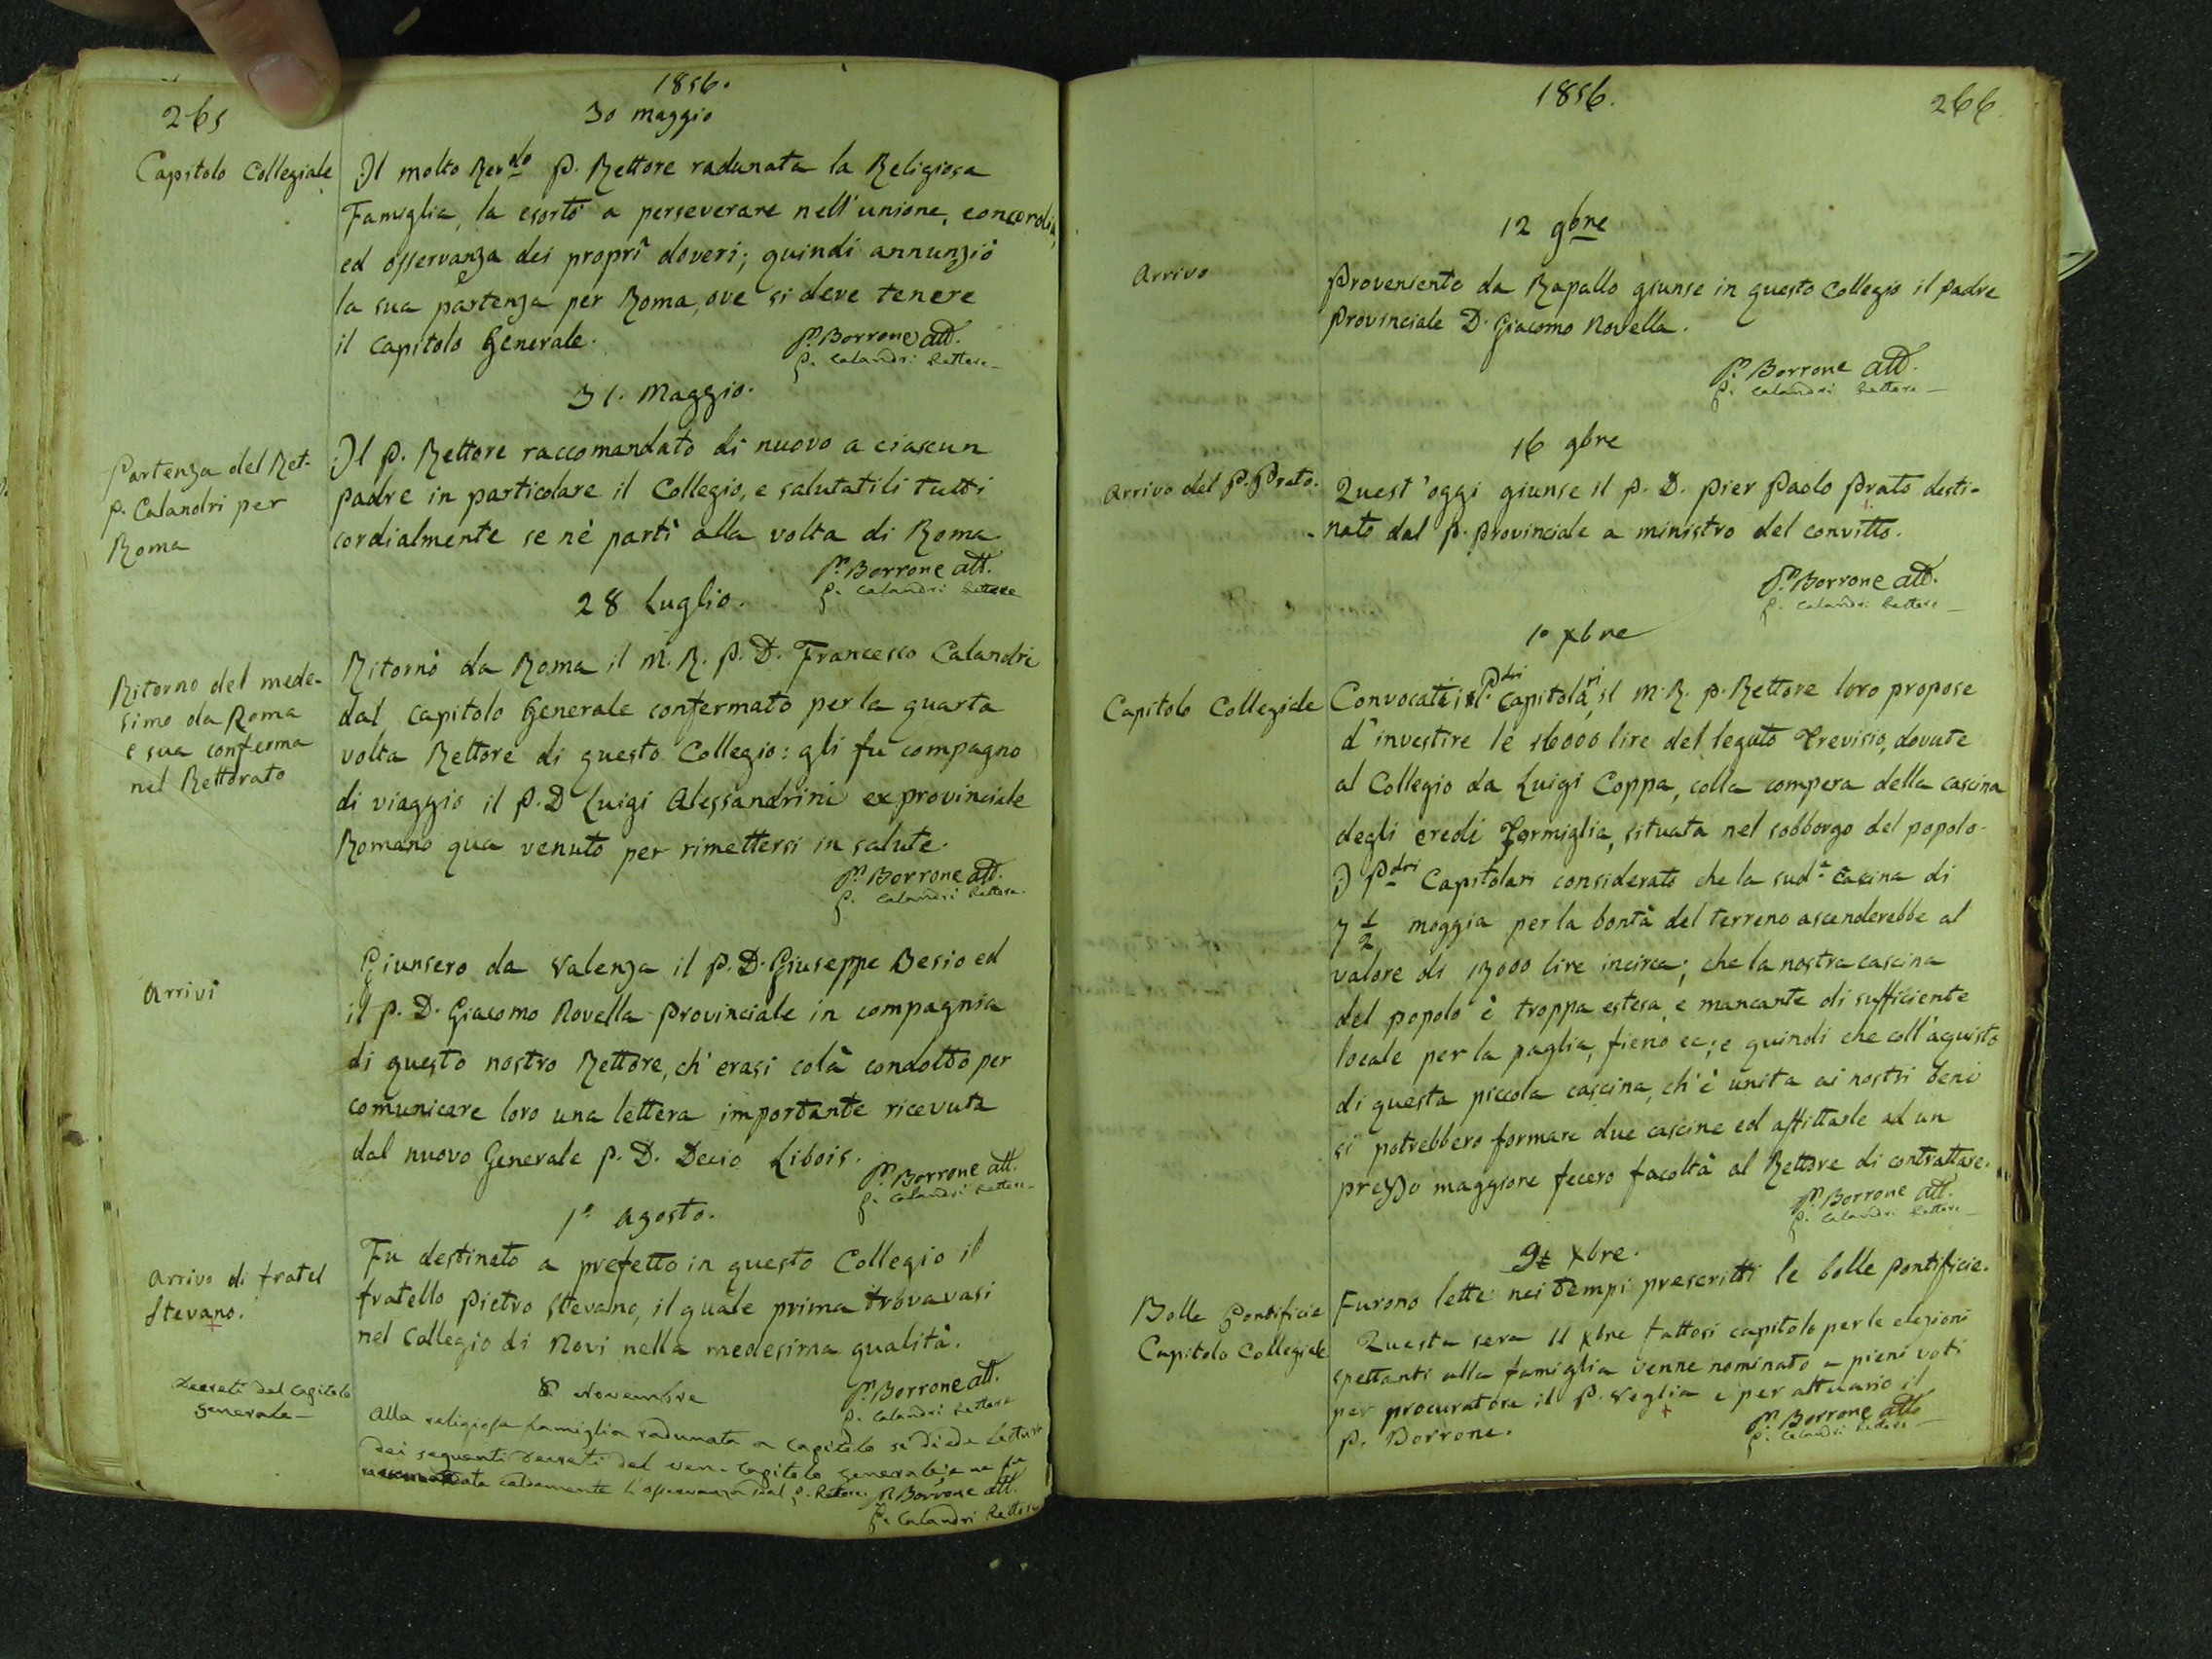 1856.
265
30 maggio
Capitolo Collegiale
Il molto Rev.do P. Rettore radunata la Religiosa
Famiglia, la esortò a perseverare nell'unione, concordia,
ed osservanza dei proprî doveri; quindi annunziò
la sua partenza per Roma, ove si deve tenere
il Capitolo Generale.
P. Borrone att.
P. Calandri Rettore
31. Maggio.
Partenza del Ret.
P. Calandri per
Roma
Il P. Rettore raccomandato di nuovo a ciascun
padre in particolare il Collegio, e salutatili tutti
cordialmente se nè partì alla volta di Roma.
P. Borrone att.
P. Calandri Rettore
28 Luglio.
Ritorno del mede-
simo da Roma
e sua conferma
nel Rettorato
Ritornò da Roma il M. R. P. D. Francesco Calandri
dal Capitolo Generale confermato per la quarta
volta Rettore di questo Collegio: gli fu compagno
di viaggio il P. D Luigi Alessandrini exprovinciale
Romano qua venuto per rimettersi in salute.
P. Borrone att.
P. Calandri Rettore.
Arrivi
Giunsero da Valenza il P. D. Giuseppe Besio ed
il P. D. Giacomo Novella Provinciale in compagnia
di questo nostro Rettore, ch'erasi colà condotto per
comunicare loro una lettera importante ricevuta
dal nuovo Generale P. D. Decio Libois.
P. Borrone att.
P. Calandri Rettore
1° Agosto.
Arrivo di fratel
Stevano.
Fu destinato a prefetto in questo Collegio il
fratello Pietro Stevano, il quale prima trovavasi
nel Collegio di Novi nella medesima qualità.
P. Borrone att.
P. Calandri Rettore
8 Novembre
Decreti del Capitolo
Generale
Alla religiosa famiglia radunata a Capitolo si diede lettura
dei seguenti Decreti del ven. Capitolo Generale, e ne fu
raccomandata caldamente l'osservanza dal P. Rettore. P. Borrone att.
P. Calandri Rettore
1856.
266.
12 9bre
Arrivo
Proveniente da Rapallo giunse in questo Collegio il Padre
Provinciale D. Giacomo Novella.
P. Borrone att.
P. Calandri Rettore
16 9bre
Arrivo del P. Prato.
Quest'oggi giunse il P. D. Pier Paolo Prato desti-
nato dal P. Provinciale a ministro del convitto.
P. Borrone att.
P. Calandri Rettore
1° Xbre
Capitolo Collegiale
Convocati i Pdri Capitolari, il M. R. P. Rettore loro propose
d'investire le 16000 lire del legato Trevisio, dovute
al Collegio da Luigi Coppa, colla compera della cascina
degli eredi Formiglia, situata nel sobborgo del popolo.
I Pdri Capitolari considerato che la sud.a cascina di
7 1/2 moggia per la bontà del terreno ascenderebbe al
valore di 13000 lire incirca; che la nostra cascina
del popolo è troppa estesa, e mancante di sufficiente
locale per la paglia, fieno ec; e quindi che coll'acquisto
di questa piccola cascina, ch'è unita ai nostri beni
si potrebbero formare due cascine ed affittarle ad un
prezzo maggiore fecero facoltà al Rettore di contrattare.
P. Borrone att.
P. Calandri Rettore
Xbre.
Bolle Pontificie
Furono lette nei tempi prescritti le bolle Pontificie.
Capitolo Collegiale
Questa sera 11 Xbre fattosi capitolo per le elezioni
spettanti alla famiglia venne nominato a pieni voti
per procuratore il P. Veglia e per attuario il
P. Borrone.
P. Borrone att.
P. Calandri Rettore